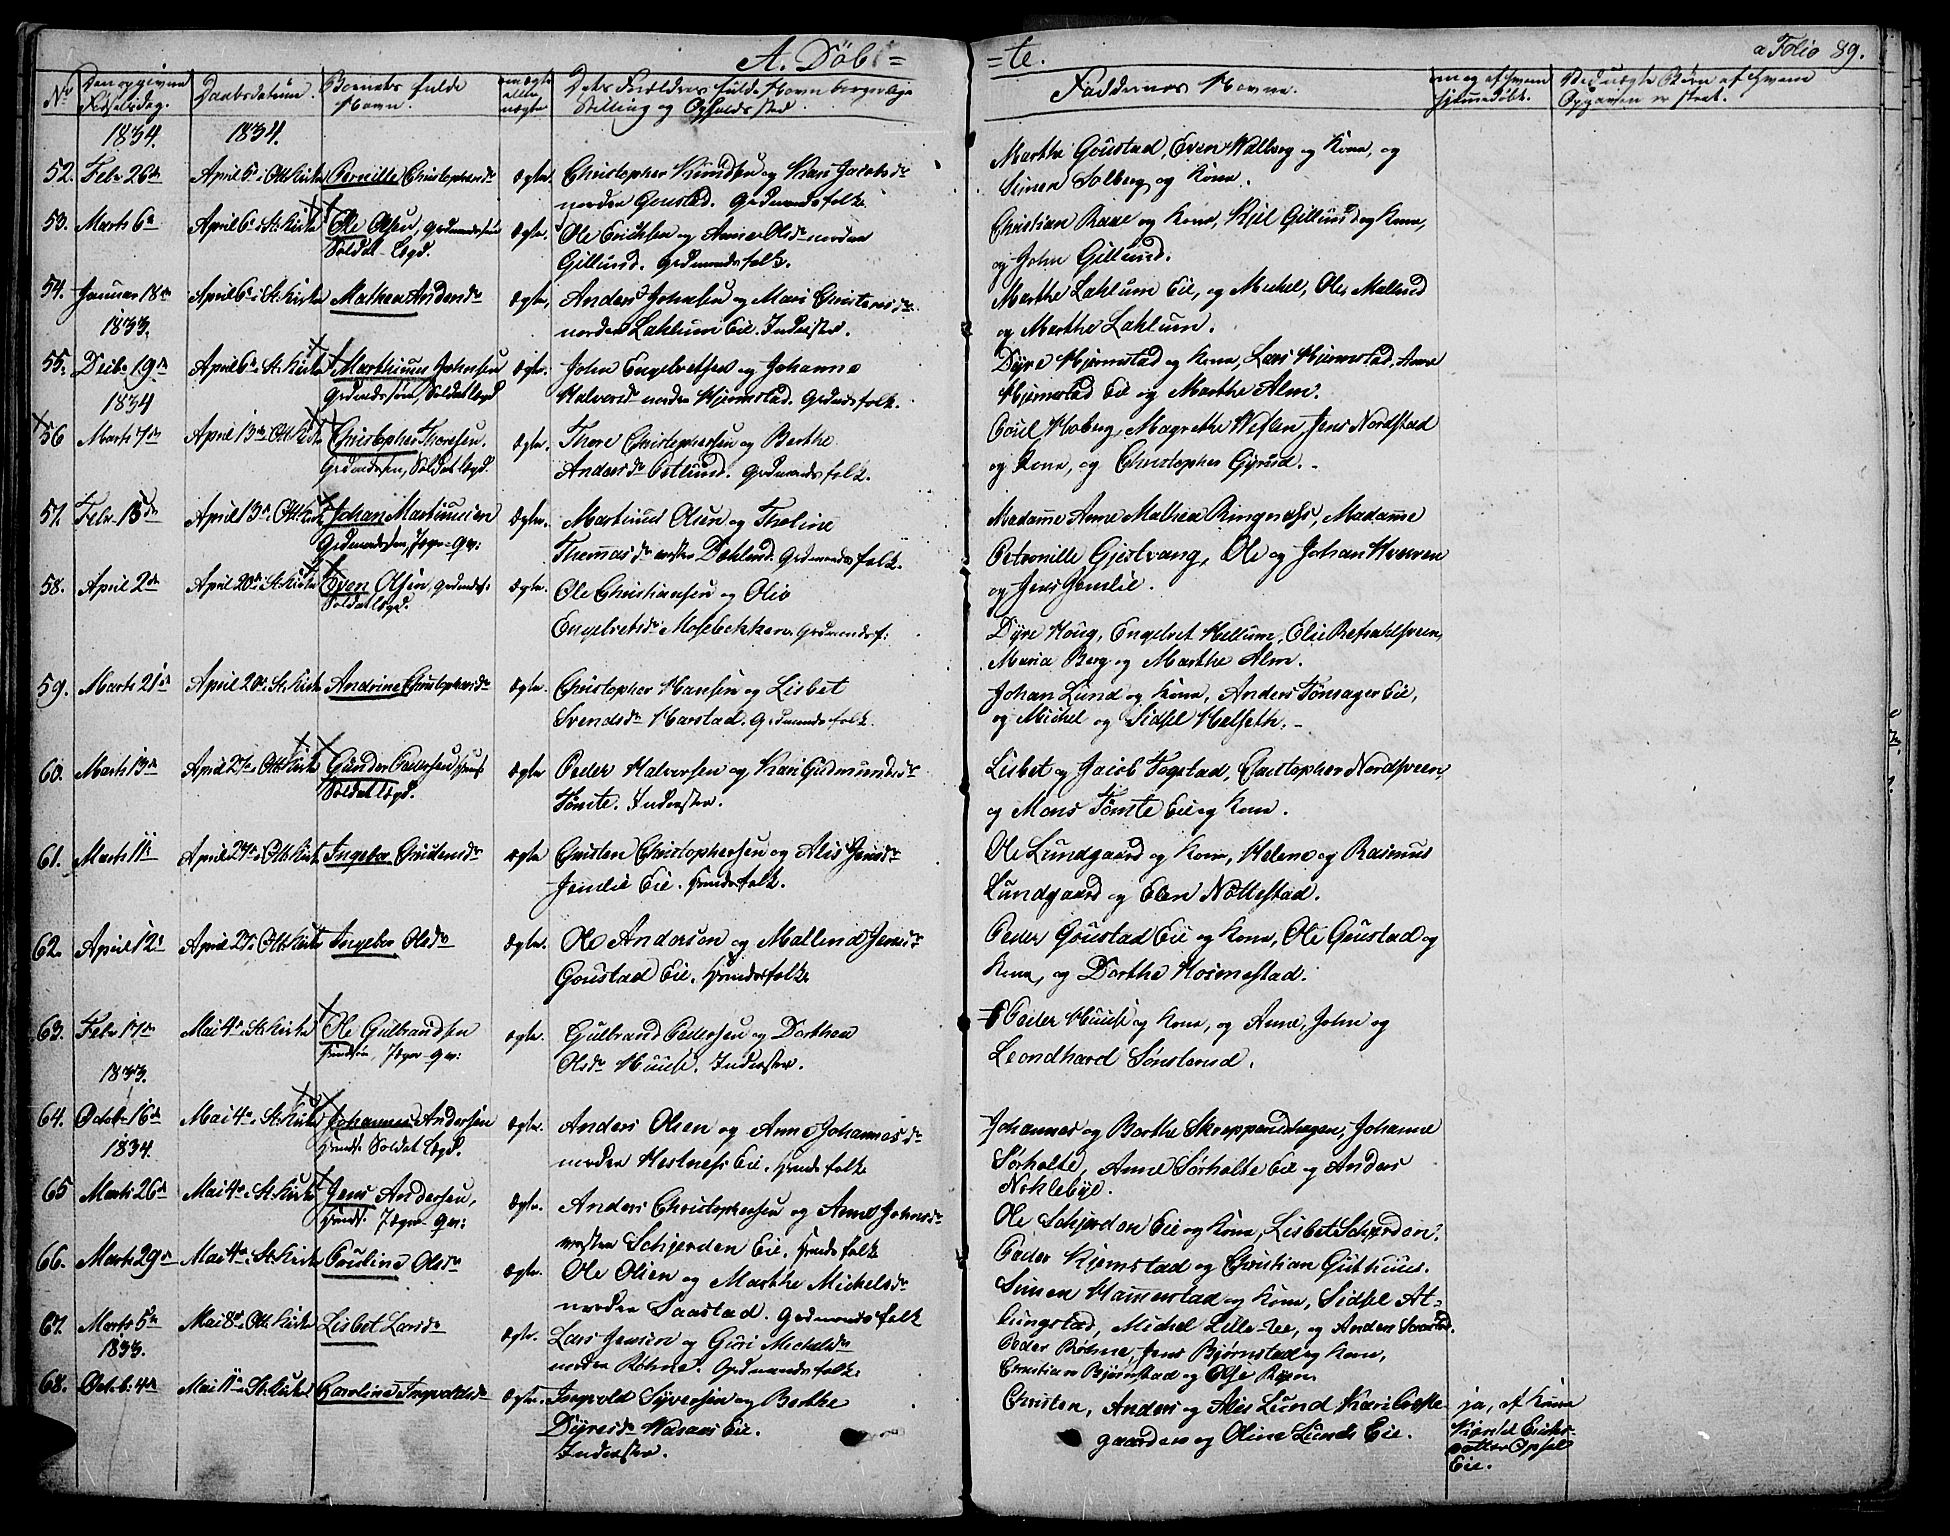 A. Döb=
=te.
a Folio 89.
No
Den opgivne Fødselsdag.
Daabsdatum.
Barnets fulde Navn.
om ægte eller uægte
Dets Forældres fulde Navn borgerlige Stilling og Opholdssted
Faddernes Navne.
om og af hvem hjemmedöbt.
Ved uægte Børn af hvem Opgaven er skeet.
1834. 1834.
52. Febr. 26de April 6te i Ott. Kirke Pernille Christophersdr ægte. Christopher Knudsen og Kari Jacobsdr
nordre Goustad. Gedmandsfolk.
Marthe Goustad, Even Walberg og Kone, og
Simen Solberg og Kone.
53. Marts 6te April 6te i St. Kirke Ole Olsen, Grdmandssön
Soldat Legd.
ægte. Ole Erichsen og Anne Olsdr nordre
Gillund. Grdmandsfolk.
Christian Raae og Kone, Kjel Gillund og Kone,
og John Gillund.
54. Januar 18de April 6te i St. Kirke Mathea Andersdr ægte, Anders Johnsen og Mari Christensdr
nordre Lahlum Eie. Inderster.
Marthe Lahlum Eie, og Michel, Ole, Mallend
og Marthe Lahlum.
1833.
55. Decbr. 19de April 6te i St. Kirke Marthinus Johnsen
Grdmdssön, Soldatlegd
ægte. John Engebretsen og Johanne
Halvorsdr nordre Hjemstad. Grdmdsfolk.
Dyre Hjemstad og Kone, Lars Hjemstad, Anne
Hjemstad Eie og Marthe Alm.
1834
56 Marts 7de April 13de i Ott. Kirke Christopher Thoresen.
Grdmdssön, Soldatlegd.
ægte. Thore Christophersen og Berthe
Andersdr Östlund. Grdmandsfolk.
Poul Hoberg, Magrethe Vesten, Jens Nordstad
og Kone, og Christopher Gjerud.
57. Febr. 15de April 13de i Ott. Kirke Johan Martinusen
Grdmandssön, Jæger-Qv:
ægte. Martinus Olsen og Theline
Thomasdr vestre Dæhlend. Grdmandsfolk.
Madamme Anne Mathea Ringnæss, Madamme
Petronille Gjestvang, Ole og Johan Hveeen
og Jens Jemlie.
58. April 2de April 20de i St. Kirke Even Olsen, Grdmdss:
Soldatlegd.
ægte. Ole Christiansen og Olia
Engebretsdr Mosebekken. Grdmandsf:
Dyre Houg, Engebret Hellum, Elie Refsahlsveen,
Maria Berg og Marthe Alm.
59. Marts 21de April 20de i St. Kirke Andrine Christophersdr ægte. Christopher Hansen og Lisbet
Svendsdr Harstad. Grdmandsfolk.
Johan Lund og Kone, Anders Tönsager Eie,
og Michel og Sidsel Helseth.
60. Marts 13de April 27de i Ott. Kirke Gunder Pedersen,
Soldatlegd.
ægte Peder Halvorsen og Kari Gudmundsdr
Tömte. Inderster.
Lisbet og Jacob Fogstad, Christopher Nordsveen,
og Mons Tömte Eie og Kone.
61. Marts 11te April 27de i Ott. Kirke Ingebor Christensdr ægte Christen Christophersen og Alis Jensdr
Jemlie Eie. Husmdsfolk.
Ole Lundgaard og Kone, Helene og Rasmus
Lundgaard og Elen Nöttestad.
62. April 12te April 27de i Ott. Kirke Ingebor Olsdr ægte. Ole Anderson og Mallend Jensdr
Goustad Eie. Husmdsfolk
Peder Goustad Eie og Kone, Ole Goustad og
Kone, og Dorthe Hosmestad.
63. Febr. 17de Mai 4de i St. Kirke Ole Gulbrandsen
Jæger-Qv:
ægte. Gulbrand Pedersen og Dorthea
Olsdr Huuse. Inderster.
Peder Huuse og Kone, og Anne, John og
Leondhard Sönsterud.
1833.
64. Octobr 16de Mai 4de i St. Kirke Johannes Andersen
Soldat Legd.
ægte. Anders Olsen og Anne Johannesdr
nordre Hestness Eie. Husmdsfolk
Johannes og Berthe Skreppendhagen, Johanne
Sörholte, Anne Sörholte Eie og Anders
Nohlebye.
1834.
65 Marts 26de Mai 4de i St. Kirke Jens Andersen,
Jæger-Qv:
ægte. Anders Christophersen og Anne Johnsdr
vestre Schjerden Eie. Husmdsfolk
Ole Schjerden Eie og Kone, Lisbet Schjerden,
Peder Hjemstad og Christian Guthuus.
66. Marts 29de Mai 4de i St. Kirke Pauline Olsdr ægte. Ole Olsen og Marthe Michelsdr
nordre Saastad. Grdmandsfolk
Simen Hammerstad og Kone, Sidsel At=
lungstad, Michel Lille-Ree, og Anders Saastad.
67. Marts 5te Mai 8de i Ott. Kirke Lisbet Larsdr ægte. Lars Jensen og Guri Michelsdr
nordre Röhne. Grdmandsfolk.
Peder Röhne, Jens Björnstad og Kone,
Christian Björnstad og Olse Röhne.
1833.
68. Octob. 4de Mai 11te i St. Kirke Caroline Ingvoldsdr ægte. Ingvold Syversen og Berthe
Dyresdr Wasaas Eie.
Inderster.
Christen, Anders og Alis Lund Kari Præste
gaarden og Oline Lunds Eie.
ja, af Kone
Kjerstel Eriks-
datter Opsal
Eie.